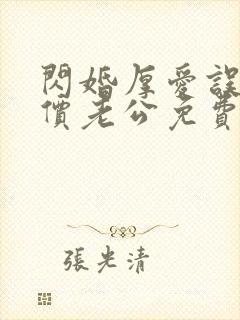 閃婚厚愛誤
價老公免費
張光清